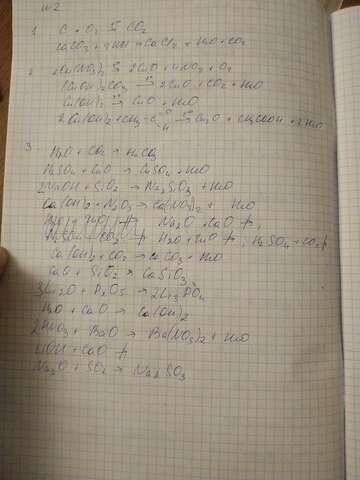 №2
1. C + O₂ →(t°) CO₂
CaCO₃ + 2HCl → CaCl₂ + H₂O + CO₂
2. 2Cu(NO₃)₂ →(t°) 2CuO + 4NO₂ + O₂
(CuOH)₂CO₃ →(t°) 2CuO + CO₂ + H₂O
Cu(OH)₂ →(t°) CuO + H₂O
2Cu(OH)₂ + CH₃-C=O-H →(t°) Cu₂O + CH₃COOH + 2H₂O
3. H₂O + CO₂ → H₂CO₃
H₂SO₄ + CuO → CuSO₄ + H₂O
2NaOH + SiO₂ → Na₂SiO₃ + H₂O
Ca(OH)₂ + N₂O₃ → Ca(NO₂)₂ + H₂O
Na₂O + CaO ; H₂O + CuO ; H₂SO₄ + CO₂
Ca(OH)₂ + CO₂ → CaCO₃ + H₂O
CaO + SiO₂ → CaSiO₃
3Li₂O + P₂O₅ → 2Li₃PO₄
H₂O + CaO → Ca(OH)₂
2HNO₃ + BaO → Ba(NO₃)₂ + H₂O
LiOH + CaO
Na₂O + SO₂ → Na₂SO₃